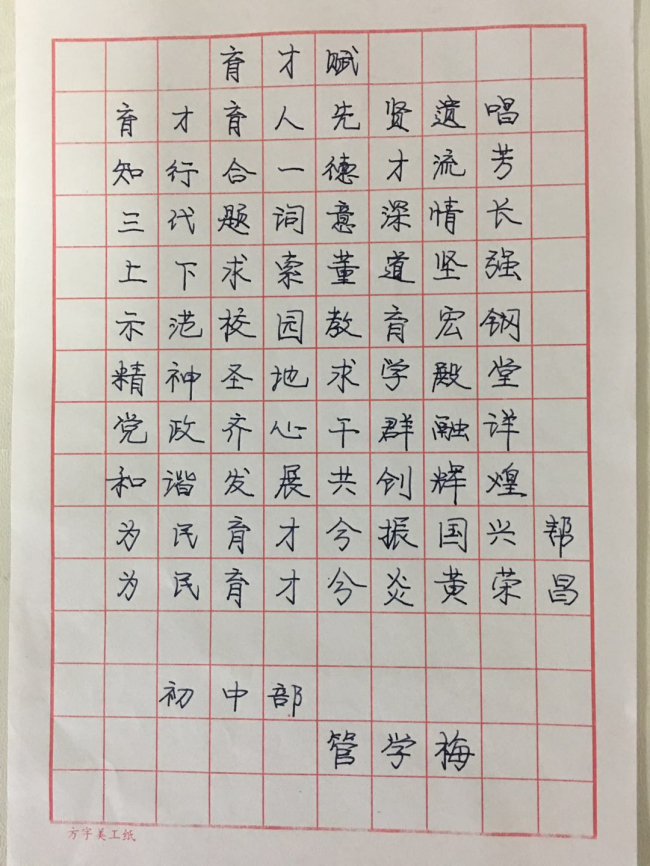 育才赋
育才育人先贤遗唱
知行合一德才流芳
三代题词意深情长
上下求索董道坚强
示范校园教育宏钢
精神圣地求学殿堂
党政齐心干群融详
和谐发展共创辉煌
为民育才兮振国兴帮
为民育才兮炎黄荣昌
初中部
管学梅
方字美工纸